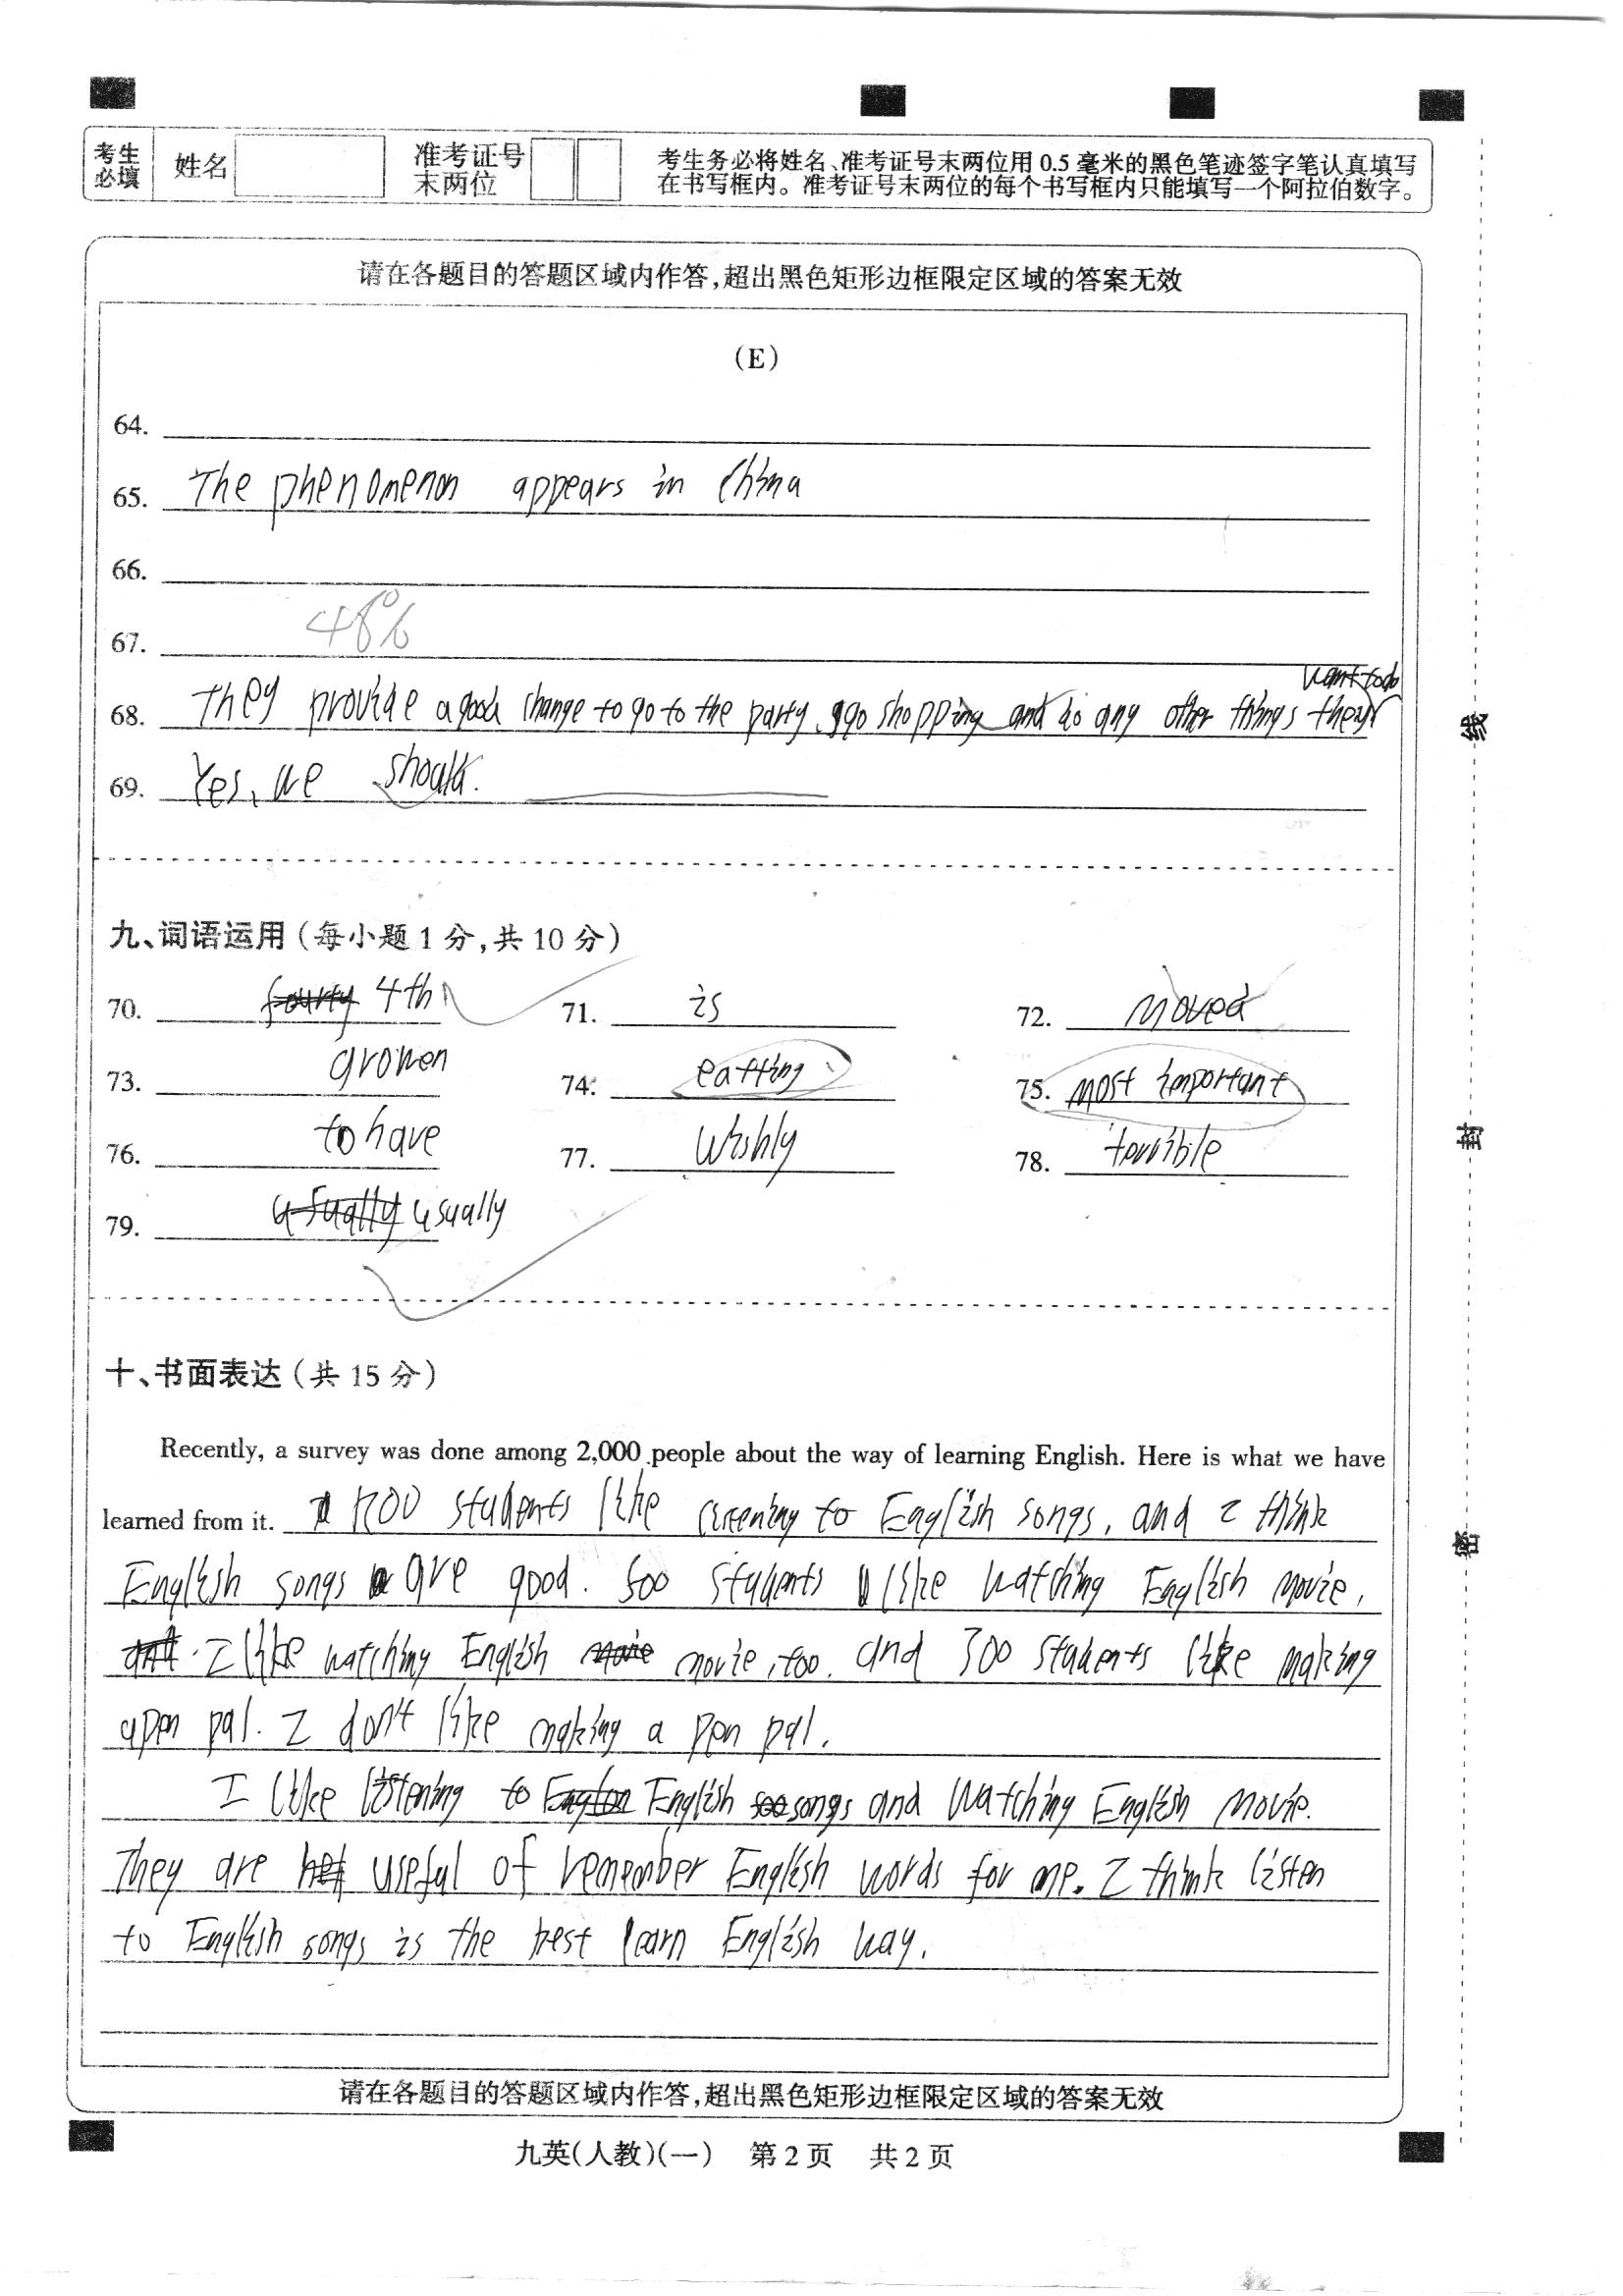 考生必填 姓名 准考证号末两位 考生务必将姓名、准考证号末两位用 0.5 毫米的黑色笔迹签字笔认真填写
在书写框内。准考证号末两位的每个书写框内只能填写一个阿拉伯数字。
请在各题目的答题区域内作答,超出黑色矩形边框限定区域的答案无效
(E)
64.
65. The phenomenon appears in China
66.
67. 48%
want to do
68. They provide a good change to go to the party, go shopping and do any other things they
69. Yes, we should.
九、词语运用(每小题 1 分,共 10 分)
70. fourty 4th 71. is 72. moved
73. growen 74. eatting 75. most important
76. to have 77. Wishly 78. terrible
79. usually
十、书面表达(共 15 分)
Recently, a survey was done among 2,000 people about the way of learning English. Here is what we have
learned from it. 1200 students like listening to English songs, and I think
English songs are good. 500 students like watching English movie,
I like watching English movie, too. and 300 students like making
a pen pal. I don't like making a pen pal.
I like listening to English songs and watching English movie.
They are useful of remember English words for me. I think listen
to English songs is the best learn English way.
请在各题目的答题区域内作答,超出黑色矩形边框限定区域的答案无效
九英(人教)(一) 第 2 页 共 2 页
线
封
密